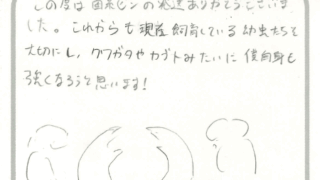 この度は 菌糸ビンの発送ありがとうございま
した。これからも 現在飼育している 幼虫たちを
大切にし、クワガタやカブトみたいに 僕自身も
強くなろうと思います!